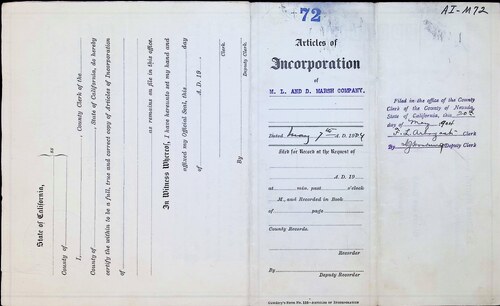 State of California,
ss
County of
I, , County Clerk of the
County of , State of California, do hereby
certify the within to be a full, true and correct copy of Articles of Incorporation
of
as remains on file in this office.
In Witness Whereof, I have hereunto set my hand and
affixed my Official Seal, this day
of A. D. 19
Clerk.
By
Deputy Clerk.
72
Articles of
Incorporation
of
M. L. AND D. MARSH COMPANY.
Dated May 7th A. D. 19
Filed for Record at the Request of
A. D. 19
at min. past o'clock
M., and Recorded in Book
of page
County Records.
Recorder
By
Deputy Recorder
AI-M72
Filed in the office of the County
Clerk of the County of Nevada,
State of California, this
day of May
Clerk
By Deputy Clerk